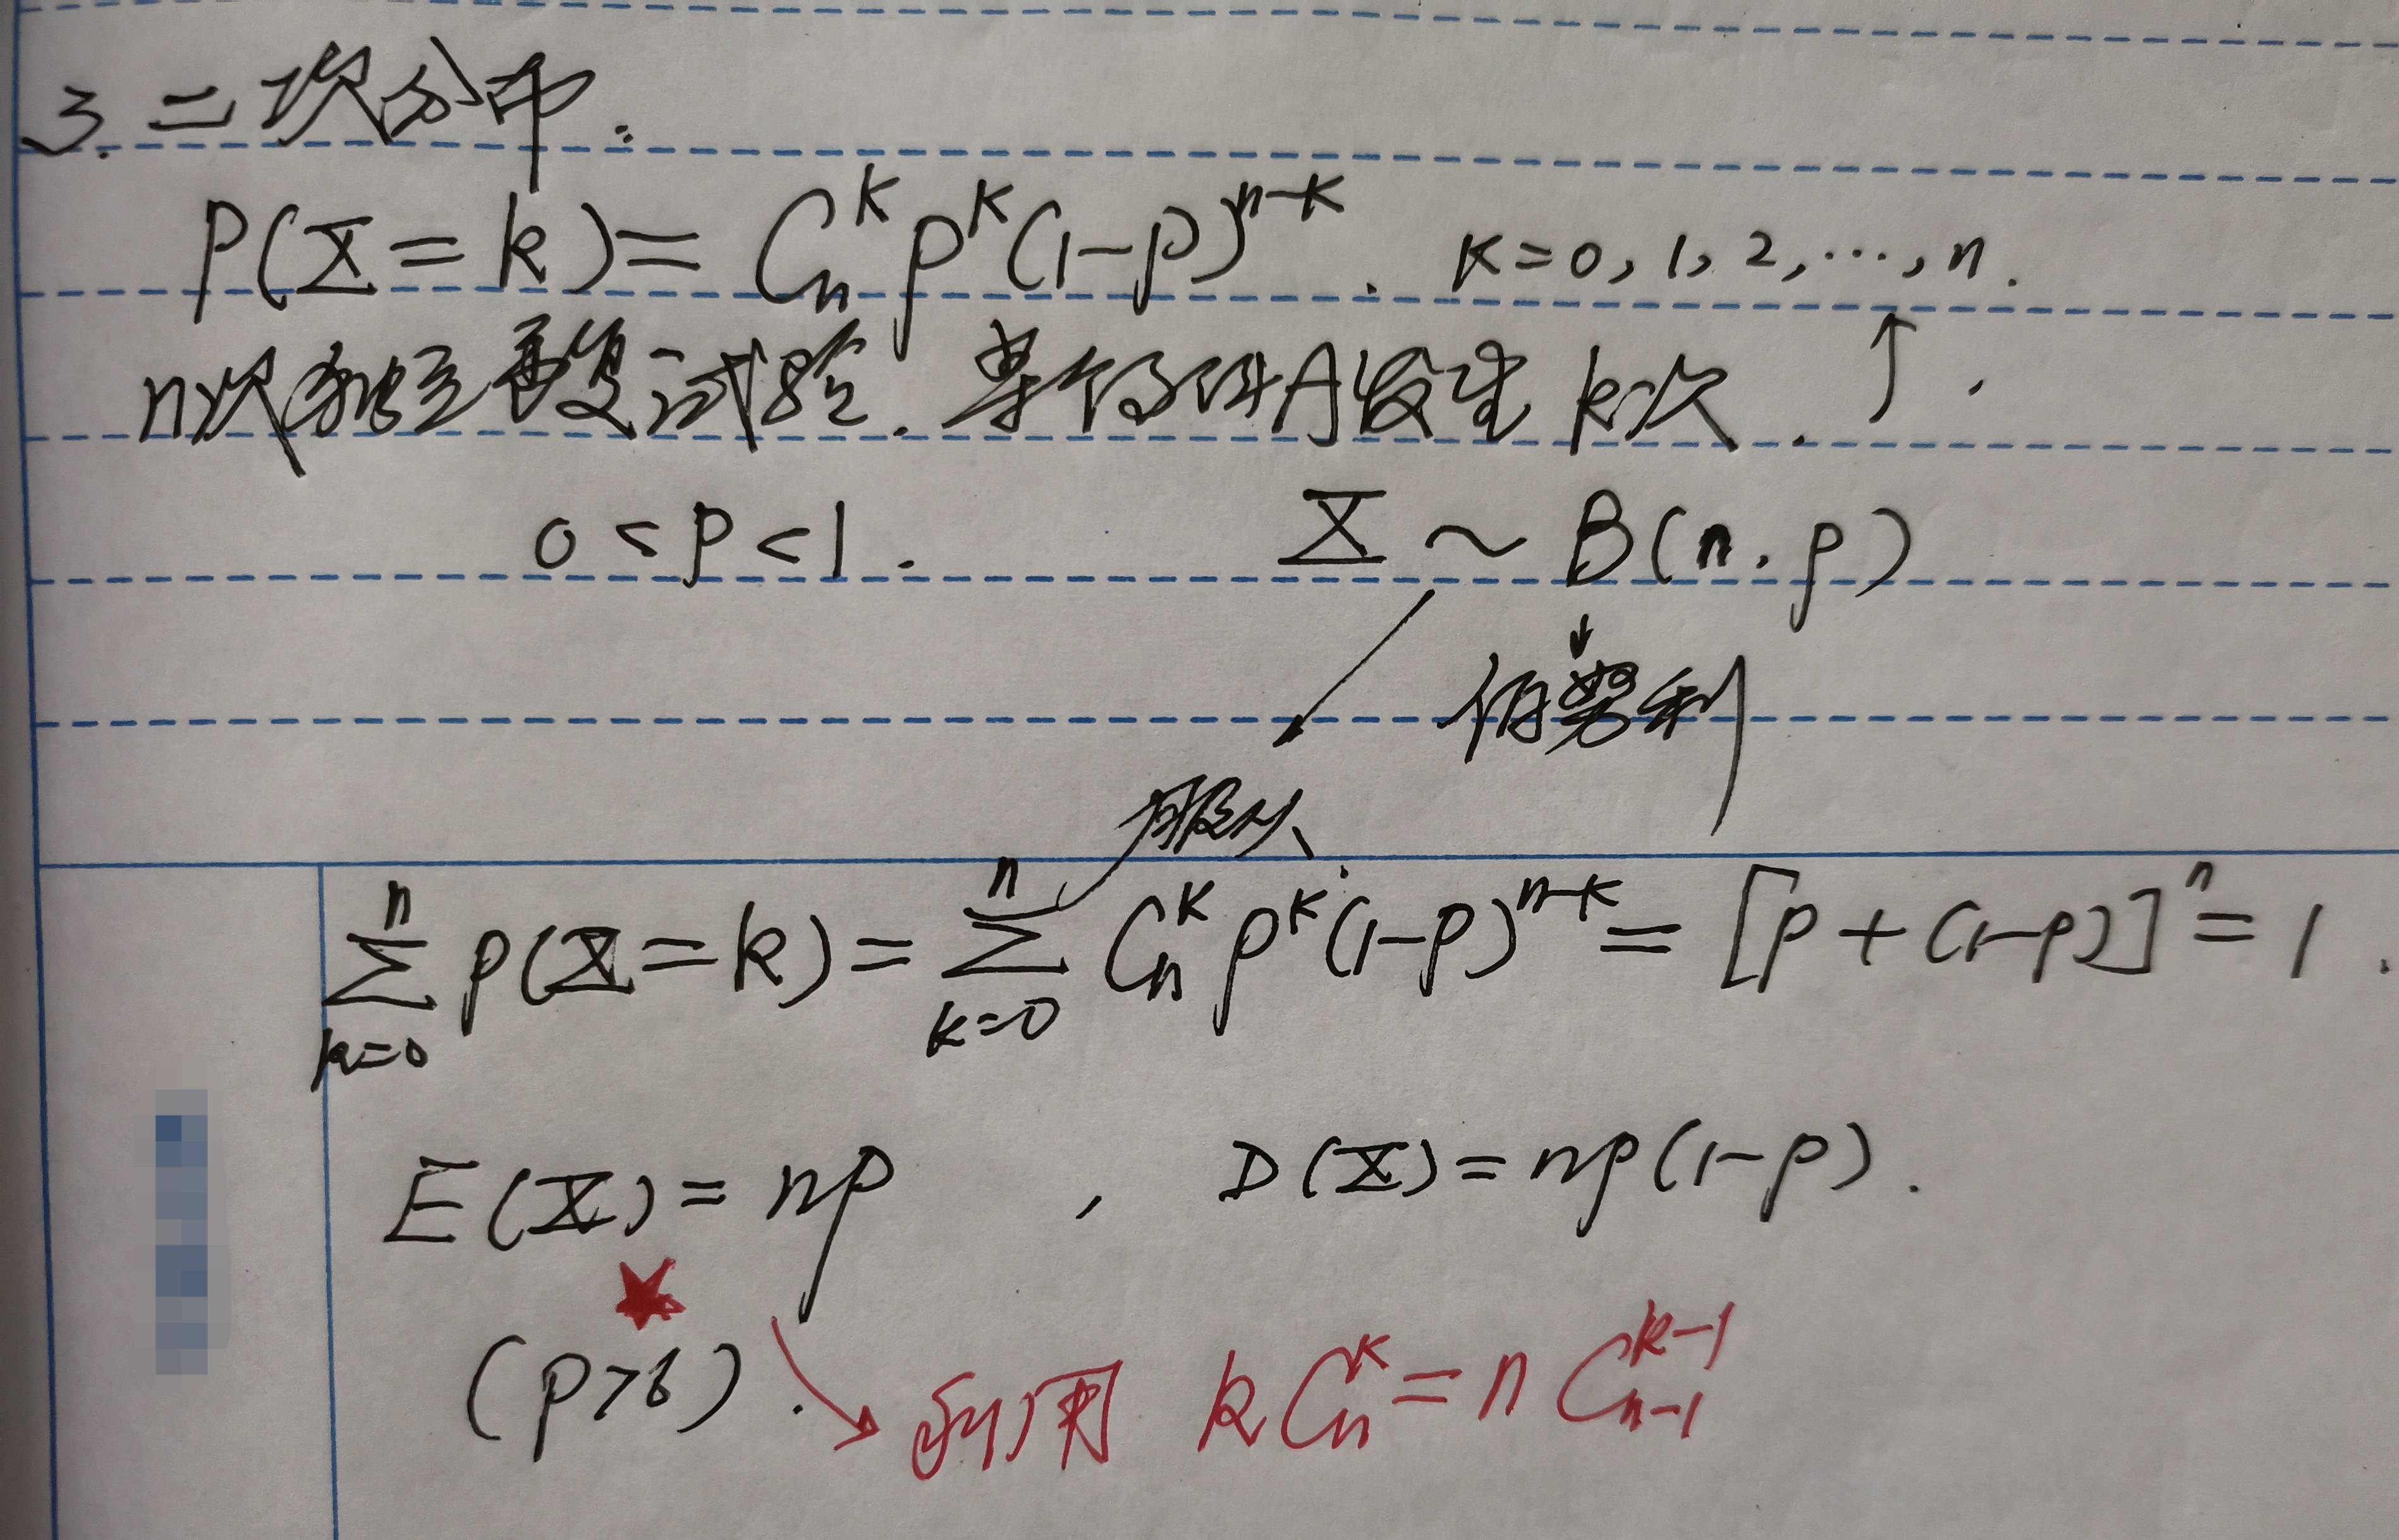 3. 二次分布:
P(X=k)=C_n^k p^k(1-p)^{n-k}. k=0,1,2,…,n.
n次独立重复试验. 某事件A发生k次. ↑.
0<p<1. X~B(n.p)
↓
伯努利
服从
\sum_{k=0}^{n} p(X=k)=\sum_{k=0}^{n} C_n^k p^k(1-p)^{n-k}=[p+(1-p)]^n=1.
E(X)=np , D(X)=np(1-p).
★
(P76). → 利用 kC_n^k=nC_{n-1}^{k-1}